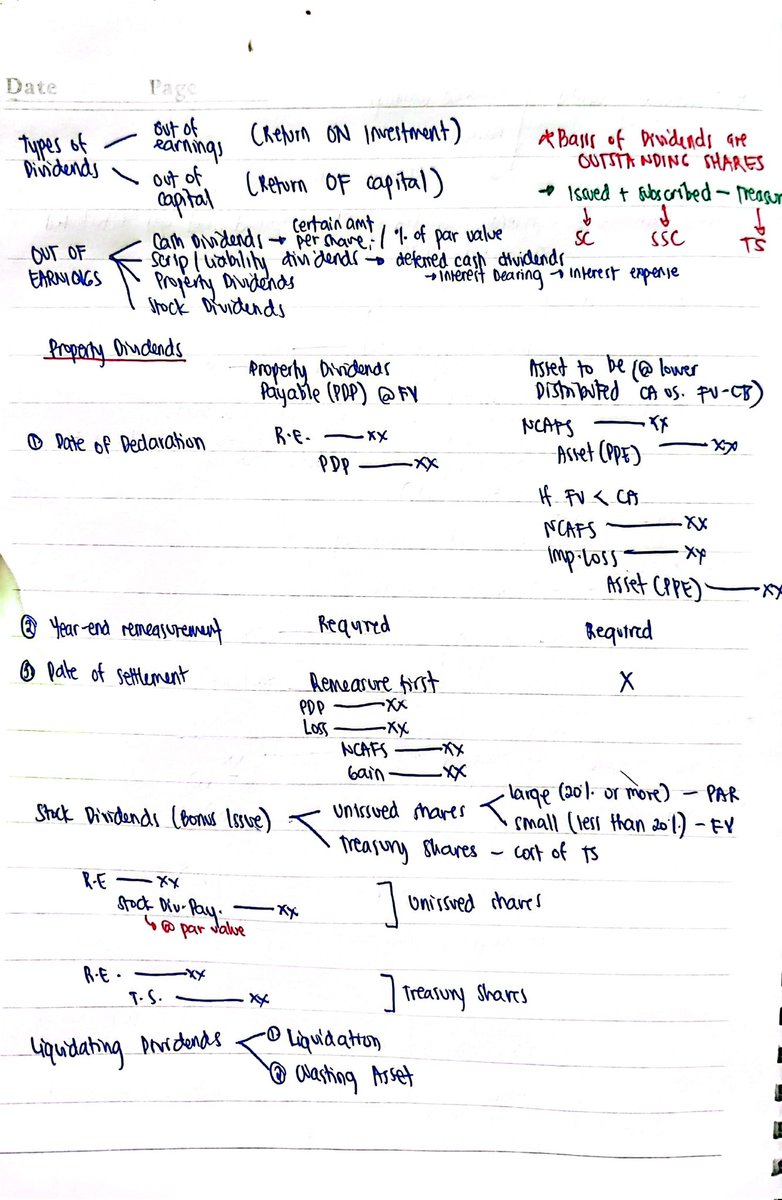 Date Page
Types of Dividends
out of earnings (Return ON Investment)
out of capital (Return OF capital)
*Basis of Dividends are
OUTSTANDING SHARES
→ Issued + subscribed - Treasur
SC SSC TS
OUT OF EARNINGS
Cash Dividends → certain amt per share / % of par value
Scrip/Liability dividends → deferred cash dividends
→ Interest Bearing → interest expense
Property Dividends
Stock Dividends
Property Dividends
Property Dividends
Payable (PDP) @ FV
Asset to be (@ lower
Distributed CA vs. FV-CD)
① Date of Declaration
R.E. — xx
PDP — xx
NCAFS — xx
Asset (PPE) — xx
If FV < CA
NCAFS — xx
Imp. Loss — xx
Asset (PPE) — xx
② Year-end remeasurement Required Required
③ Date of settlement Remeasure first X
PDP — xx
Loss — xx
NCAFS — xx
Gain — xx
Stock Dividends (Bonus Issue)
unissued shares
large (20% or more) - PAR
small (less than 20%) - FV
Treasury shares - cost of TS
R.E — xx
Stock Div. Pay. — xx
↳ @ par value
] unissued shares
R.E. — xx
T.S. — xx
] Treasury shares
Liquidating Dividends
① Liquidation
② Wasting Asset